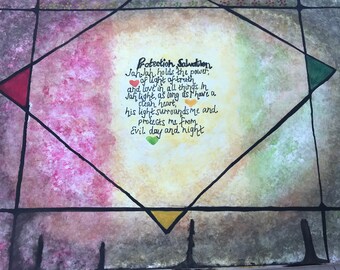 Protection Salvation
Jah Jah holds the power,
of light of truth
and love in all things in
Jah light, as long as I have a
clean heart,
his light surrounds me and
protects me from
Evil day and night